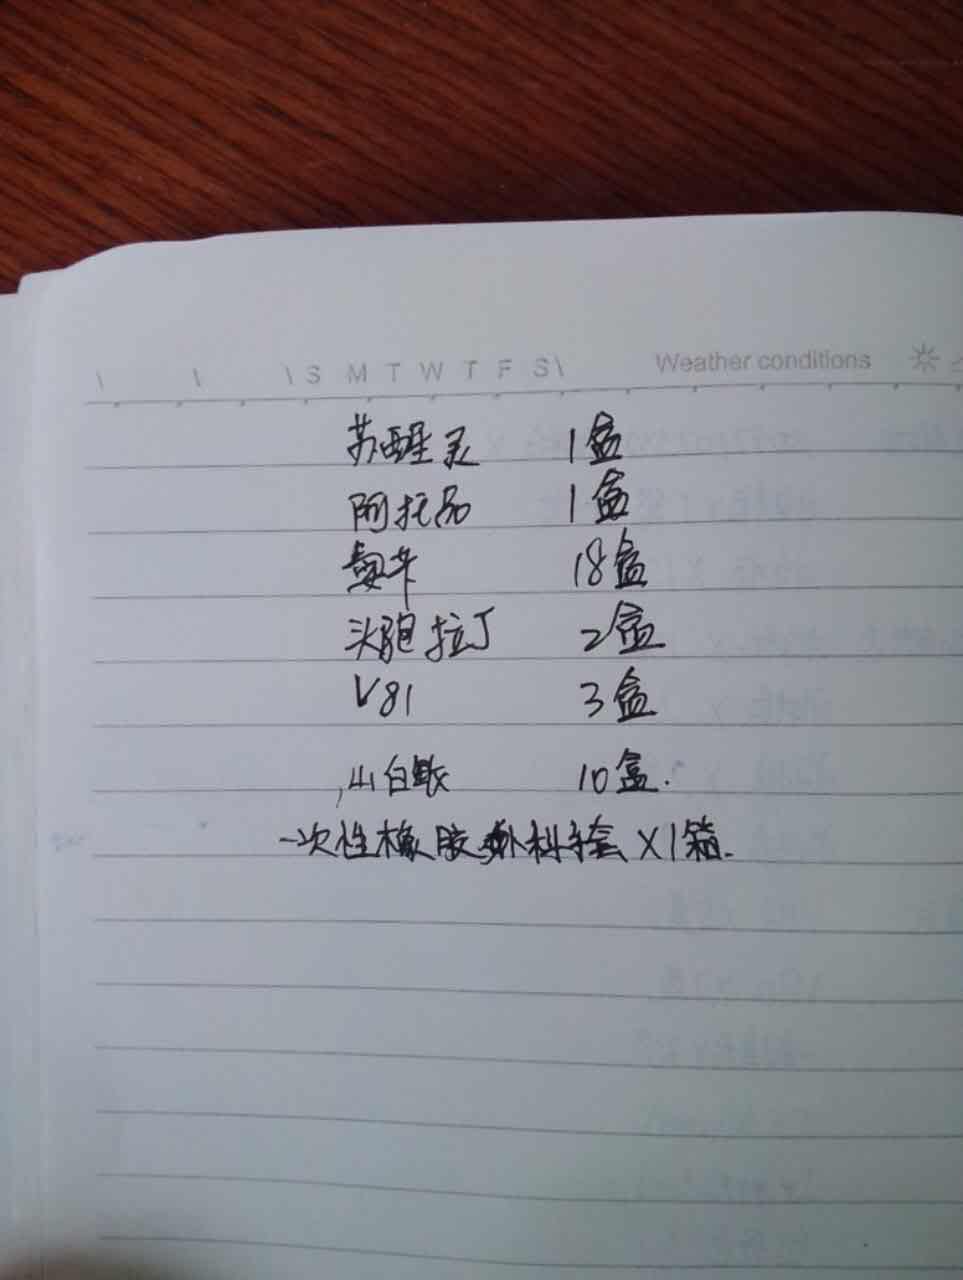 \ \ \ S M T W T F S \ Weather conditions
苏醒灵 1盒
阿托品 1盒
氨苄 18盒
头孢拉丁 2盒
VB1 3盒
山白酸 10盒.
一次性橡胶外科手套 X1箱.